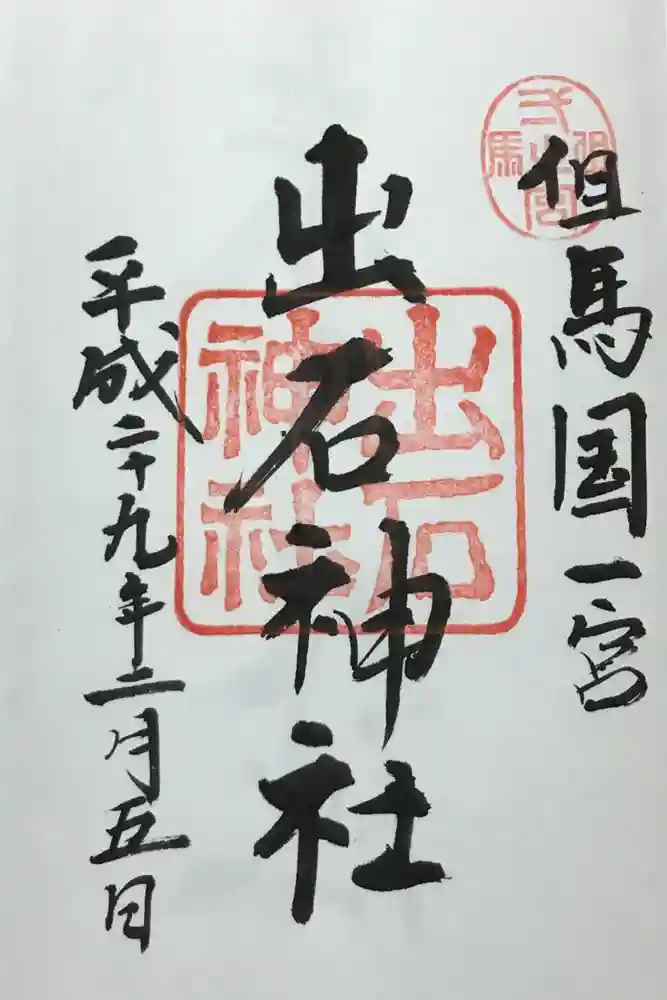 但馬国一宮
出石神社
平成二十九年二月五日
出石
神社